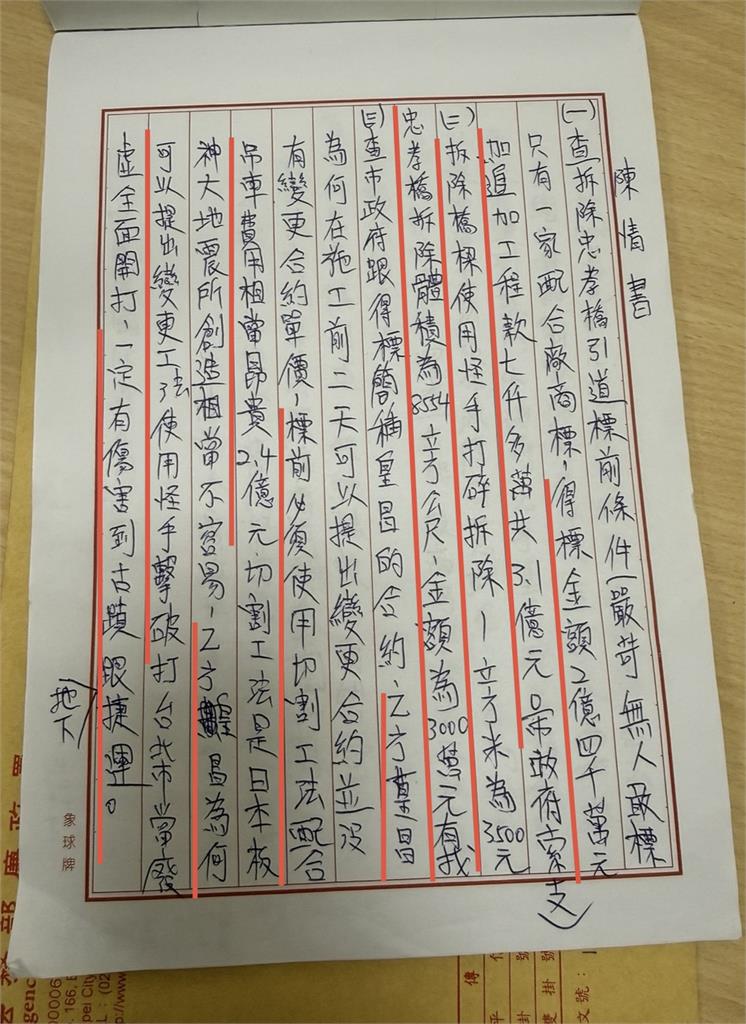 陳情書
(一)查拆除忠孝橋引道標前條件嚴苛無人敢標
只有一家配合廠商標,得標金額2億四千萬元
加追加工程款七仟多萬共3.1億元是政府索支)
(二)拆除橋樑使用怪手打碎拆除1立方米為3500元
忠孝橋拆除體積為8554立方公尺,金額為3000萬元有找
(三)查市政府跟得標簡稱皇昌的合約,乙方皇昌
為何在施工前二天可以提出變更合約並沒
有變更合約單價,標前必須使用切割工法配合
吊車費用相當昂貴2.4億元,切割工法是日本阪
神大地震所創造相當不容易,乙方昌為何
可以提出變更工法使用怪手擊破打台北市當廢
虛全面開打,一定有傷害到古蹟跟捷運。
地下
象球牌